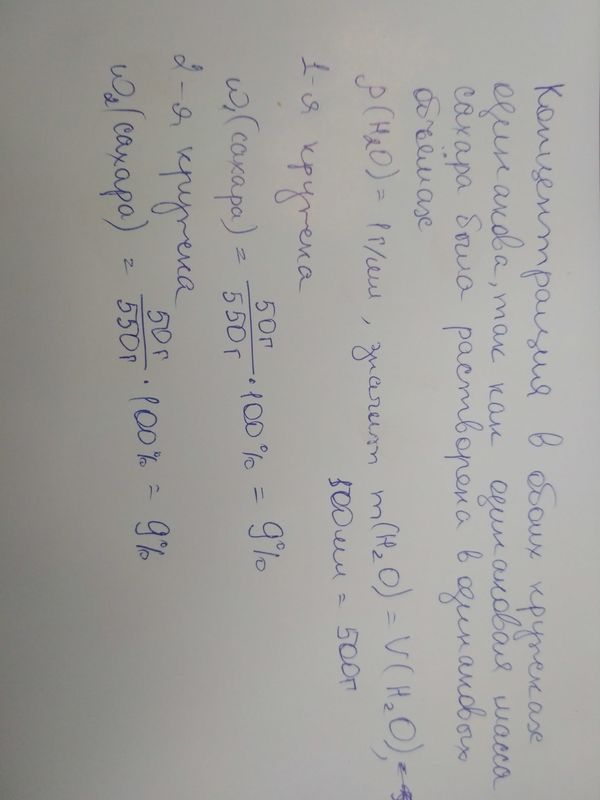 Концентрация в обоих кружках
одинакова, так как одинаковая масса
сахара была растворена в одинаковых
объёмах
ρ(H₂O) = 1 г/мл, значит m(H₂O) = V(H₂O),
500 мл = 500г
1-я кружека
ω₁(сахара) = 50г/550г · 100% = 9%
2-я кружека
ω₂(сахара) = 50г/550г · 100% = 9%